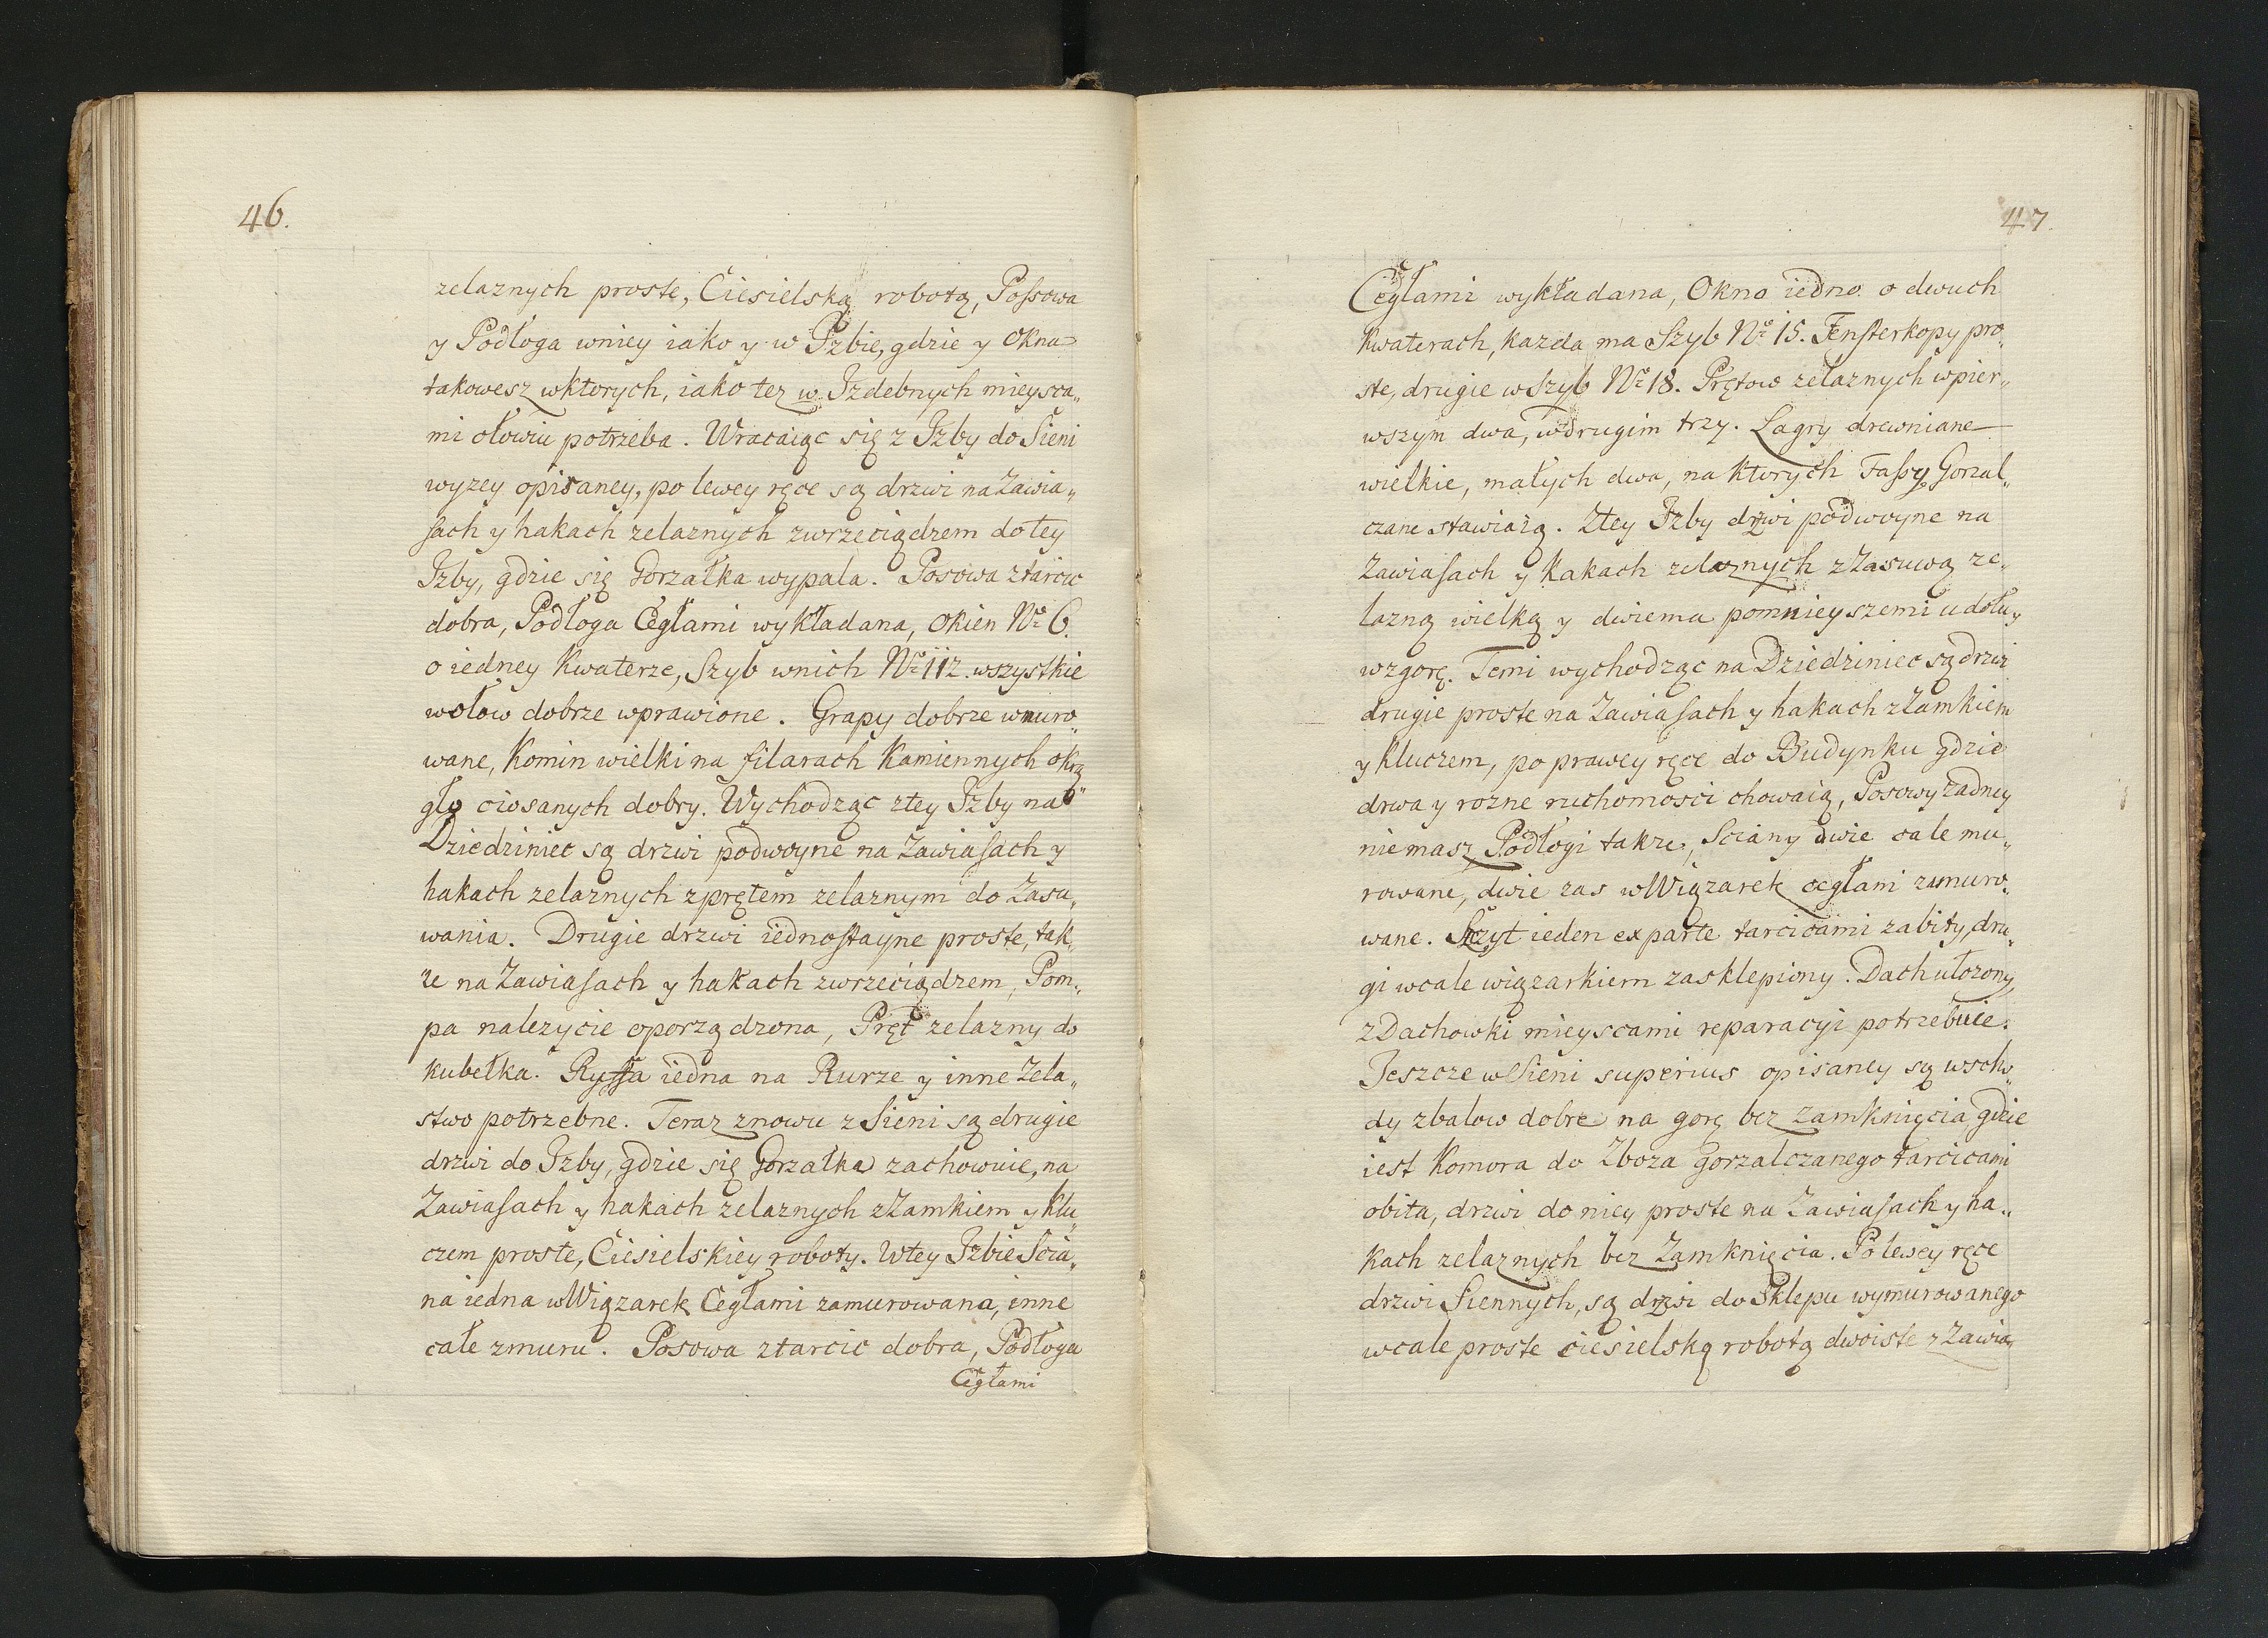 46.
zelaznych proste, Ciesielską robotą, Possowa
y Podłoga wniey iako y w Izbie, gdzie y okna
takowesz wktorych, iako tez w Izdebnych mieysca„
mi ołowiu potrzeba. Wracaiąc się z Izby do Sieni
wyzey opisaney, po lewey ręce są drzwi na Zawia„
sach y hakach zelaznych zwrzeciądzem do tey
Izby, gdzie się Gorzałka wypala. Posowa ztarcic
dobra, Podłoga Cegłami wykładana, okien Nº 6.
o iedney Kwaterze, Szyb wnich Nº 112. wszystkie
wołow dobrze wprawione. Grapy dobrze wmuro„
wane, Komin wielki na filarach Kamiennych okrą„
gło ciosanych dobry. Wychodząc ztey Izby na
Dziedziniec są drzwi podwoyne na Zawiasach y
hakach zelaznych zprętem zelaznym do Zasu„
wania. Drugie drzwi iednostayne proste, tak„
ze na Zawiasach y hakach zwrzeciądzem, Pom„
pa nalezycie oporządzona, Pręt zelazny do
kubełka. Ryffa iedna na Rurze y inne Zela„
stwo potrzebne. Teraz znowu z Sieni są drugie
drzwi do Izby, gdzie się Gorzałka zachowuie, na
Zawiasach y hakach zelaznych z Zamkiem y klu„
czem proste, Ciesielskiey roboty. Wtey Izbie Scia„
na iedna w Wiązarek Cegłami zamurowana, inne
całe zmuru. Posowa ztarcic dobra, Podłoga
Cegłami
47.
Cegłami wykładana, Okno iedno o dwuch
Kwaterach, kazda ma Szyb Nº 15. Fensterkopy pro„
ste, drugie w Szyb Nº 18. Prętow zelaznych wpier„
wszym dwa, wdrugim trzy. Lagry drewniane
wielkie, małych dwa, na ktorych Fassy Gorzal„
czane stawiaią. Ztey Izby drzwi podwoyne na
Zawiasach y Kakach zelaznych z Zasuwą ze„
lazną wielką y dwiema pomnieyszemi u dołu y
wzgorę. Temi wychodząc na Dziedziniec są drzwi
drugie proste na Zawiasach y hakach z Zamkiem
y Kluczem, po prawey ręce do Budynku gdzie
drwa y rozne ruchomosci chowaią, Posowy zadney
niemasz Podłogi takze, Sciany dwie cale mu„
rowane, dwie zas w Wiązarek cegłami zamuro„
wane. Szczyt ieden ex parte tarcicami zabity, dru„
gi wcale wiązarkiem zasklepiony. Dach ułozony,
z Dachowki mieyscami reparacyi potrzebuie.
Jeszcze w Sieni superius opisaney są wscho„
dy zbalow dobre na gorę bez zamknięcia, gdzie
iest Komora do Zboza gorzalczanego tarcicami
obita, drzwi do niey proste na Zawiasach y ha„
kach zelaznych bez Zamknięcia. Po lewey ręce
drzwi Siennych, są drzwi do Sklepu wymurowanego
wcale proste ciesielską robotą dwoiste z Zawia„